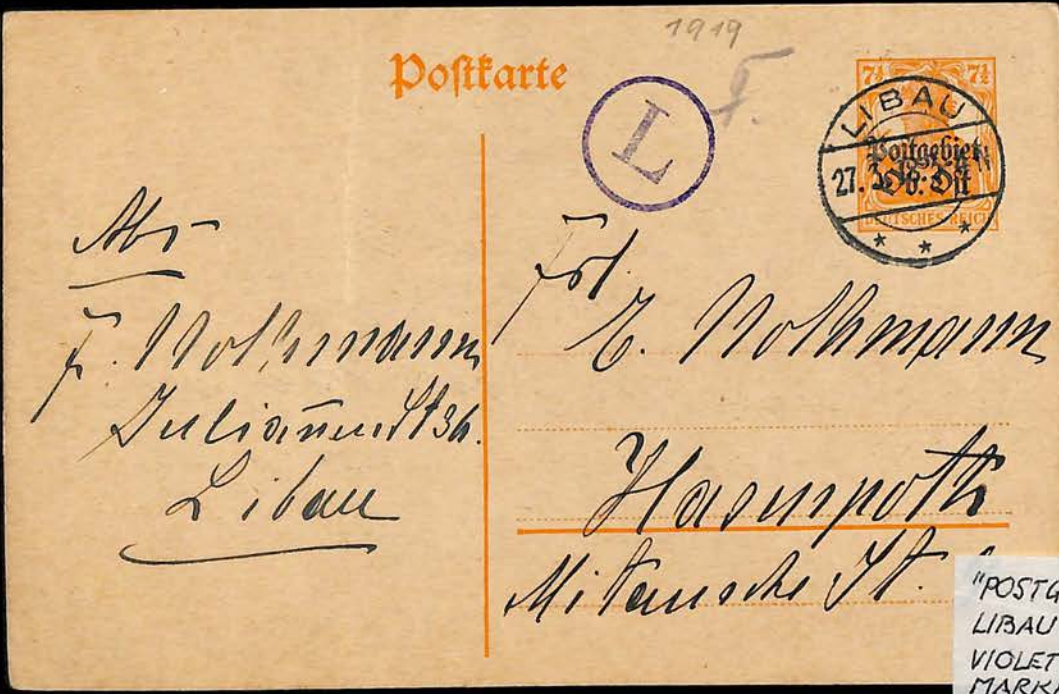 1919
Postkarte
7½ 7½
L
LIBAU
Postgebiet
Ob. Ost
27.
DEUTSCHES REICH
Abs
F. Volkmann
Libau
Frl.
E. Volkmann
Hasenpoth
Mitausche St.
"POSTG
LIBAU
VIOLET
MARK